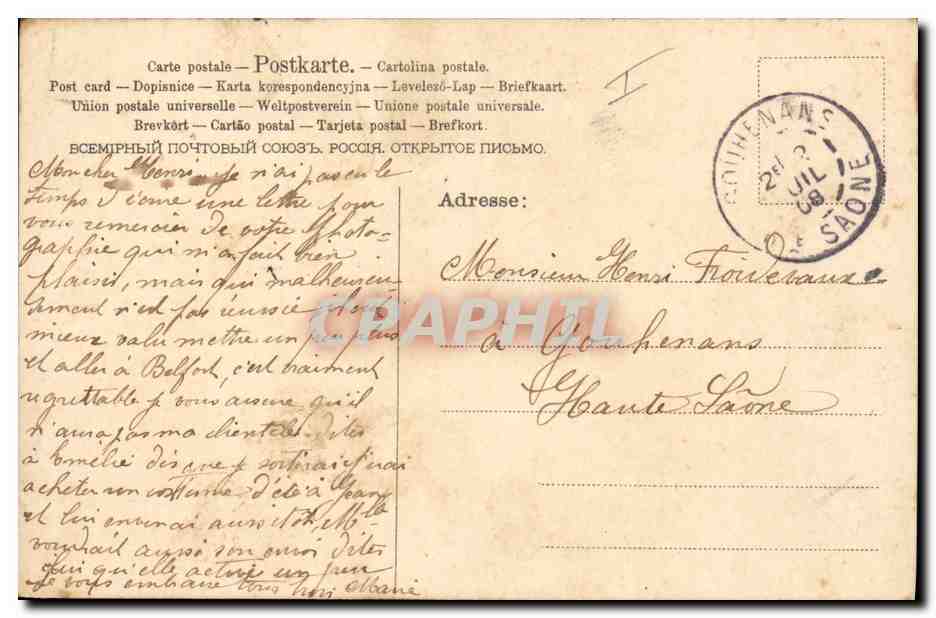 Carte postale — Postkarte. — Cartolina postale.
Post card — Dopisnice — Karta korespondencyjna — Levelező-Lap — Briefkaart.
Union postale universelle — Weltpostverein — Unione postale universale.
Brevkórt — Cartão postal — Tarjeta postal — Brefkort.
ВСЕМІРНЫЙ ПОЧТОВЫЙ СОЮЗЪ. РОССІЯ. ОТКРЫТОЕ ПИСЬМО.
Mon cher Henri je n'ai pas eu le
temps d'écrire une lettre pour
vous remercier de votre Photo=
graphie qui m'a fait bien
plaisir, mais qui malheureu
sement n'est pas réussie il eut
mieux valu mettre un peu plus
et aller à Belfort, c'est vraiment
regrettable je vous assure qu'il
n'aura pas ma clientèle dites
à Emélie dès que je sortirai j'irai
acheter un costume d'été à Jean
et lui enverrai aussitôt, Mlle
voudrait aussi son envoi dites
lui qu'elle active un peu
je vous embrasse tous trois Marie
Adresse:
Monsieur Henri Froidevaux
à Gouhenans
Haute Saône
GOUHENANS
2E
2
JUIL
08
Hte SAONE
I
CPAPHIL